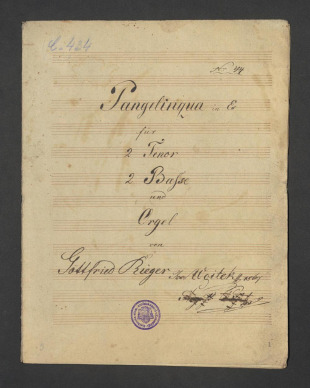 L. 424
No 44
Pangelinqua in Es
für
2 Tenor
2 Basse
und
Orgel
von
Gottfried Rieger